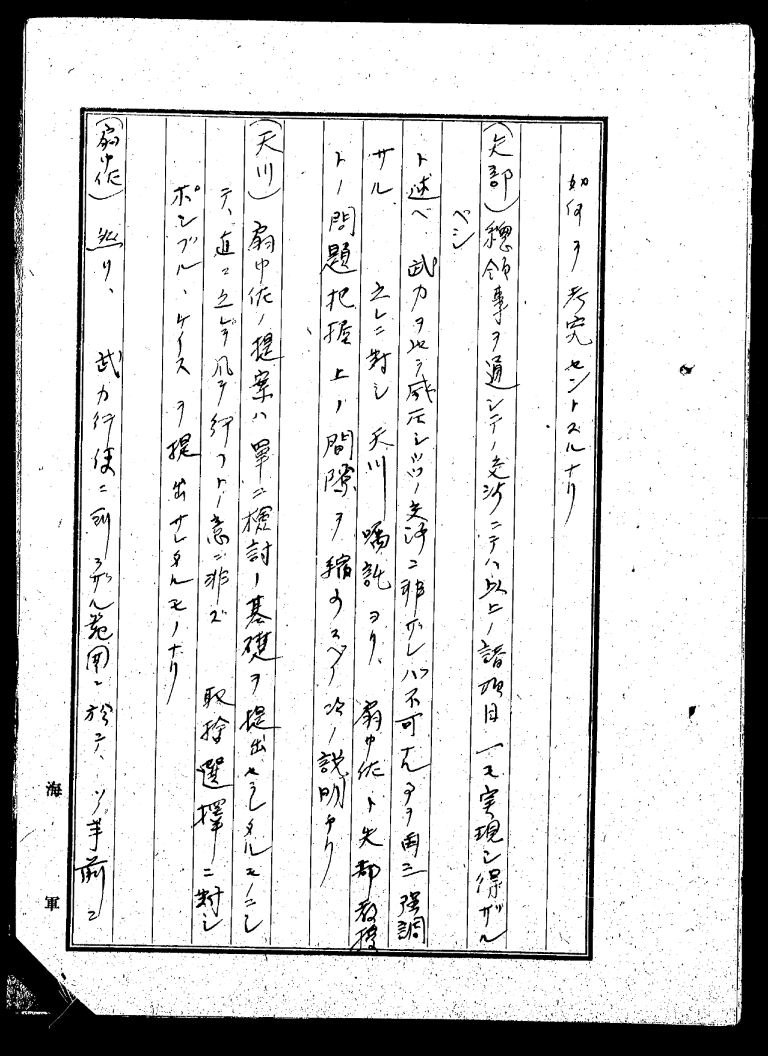 如何ヲ考究セントスルナリ
(矢部)總領事ヲ通シテノ交渉ニテハ以上ノ諸項目一モ実現シ得ザル
ベシ
ト述ベ、武力ヲ以テ威圧シツツノ交渉ニ非ザレバ不可ナルヲ再三強調
サル 之レニ対シ天川嘱託ヨリ、扇中佐ト矢部教授
トノ問題把握上ノ間隙ヲ縮ムベク次ノ説明アリ
(天川)扇中佐ノ提案ハ單ニ検討ノ基礎ヲ提出セラレタルモノニシ
テ、直ニ之レヲ行フトノ意ニ非ズ 取捨選擇ニ対シ
ポシブル、ケイスヲ提出サレタルモノナリ
(扇中佐)然リ、 武力行使ニ到ラザル範囲ニ於テ、ソノ手前ニ
海軍